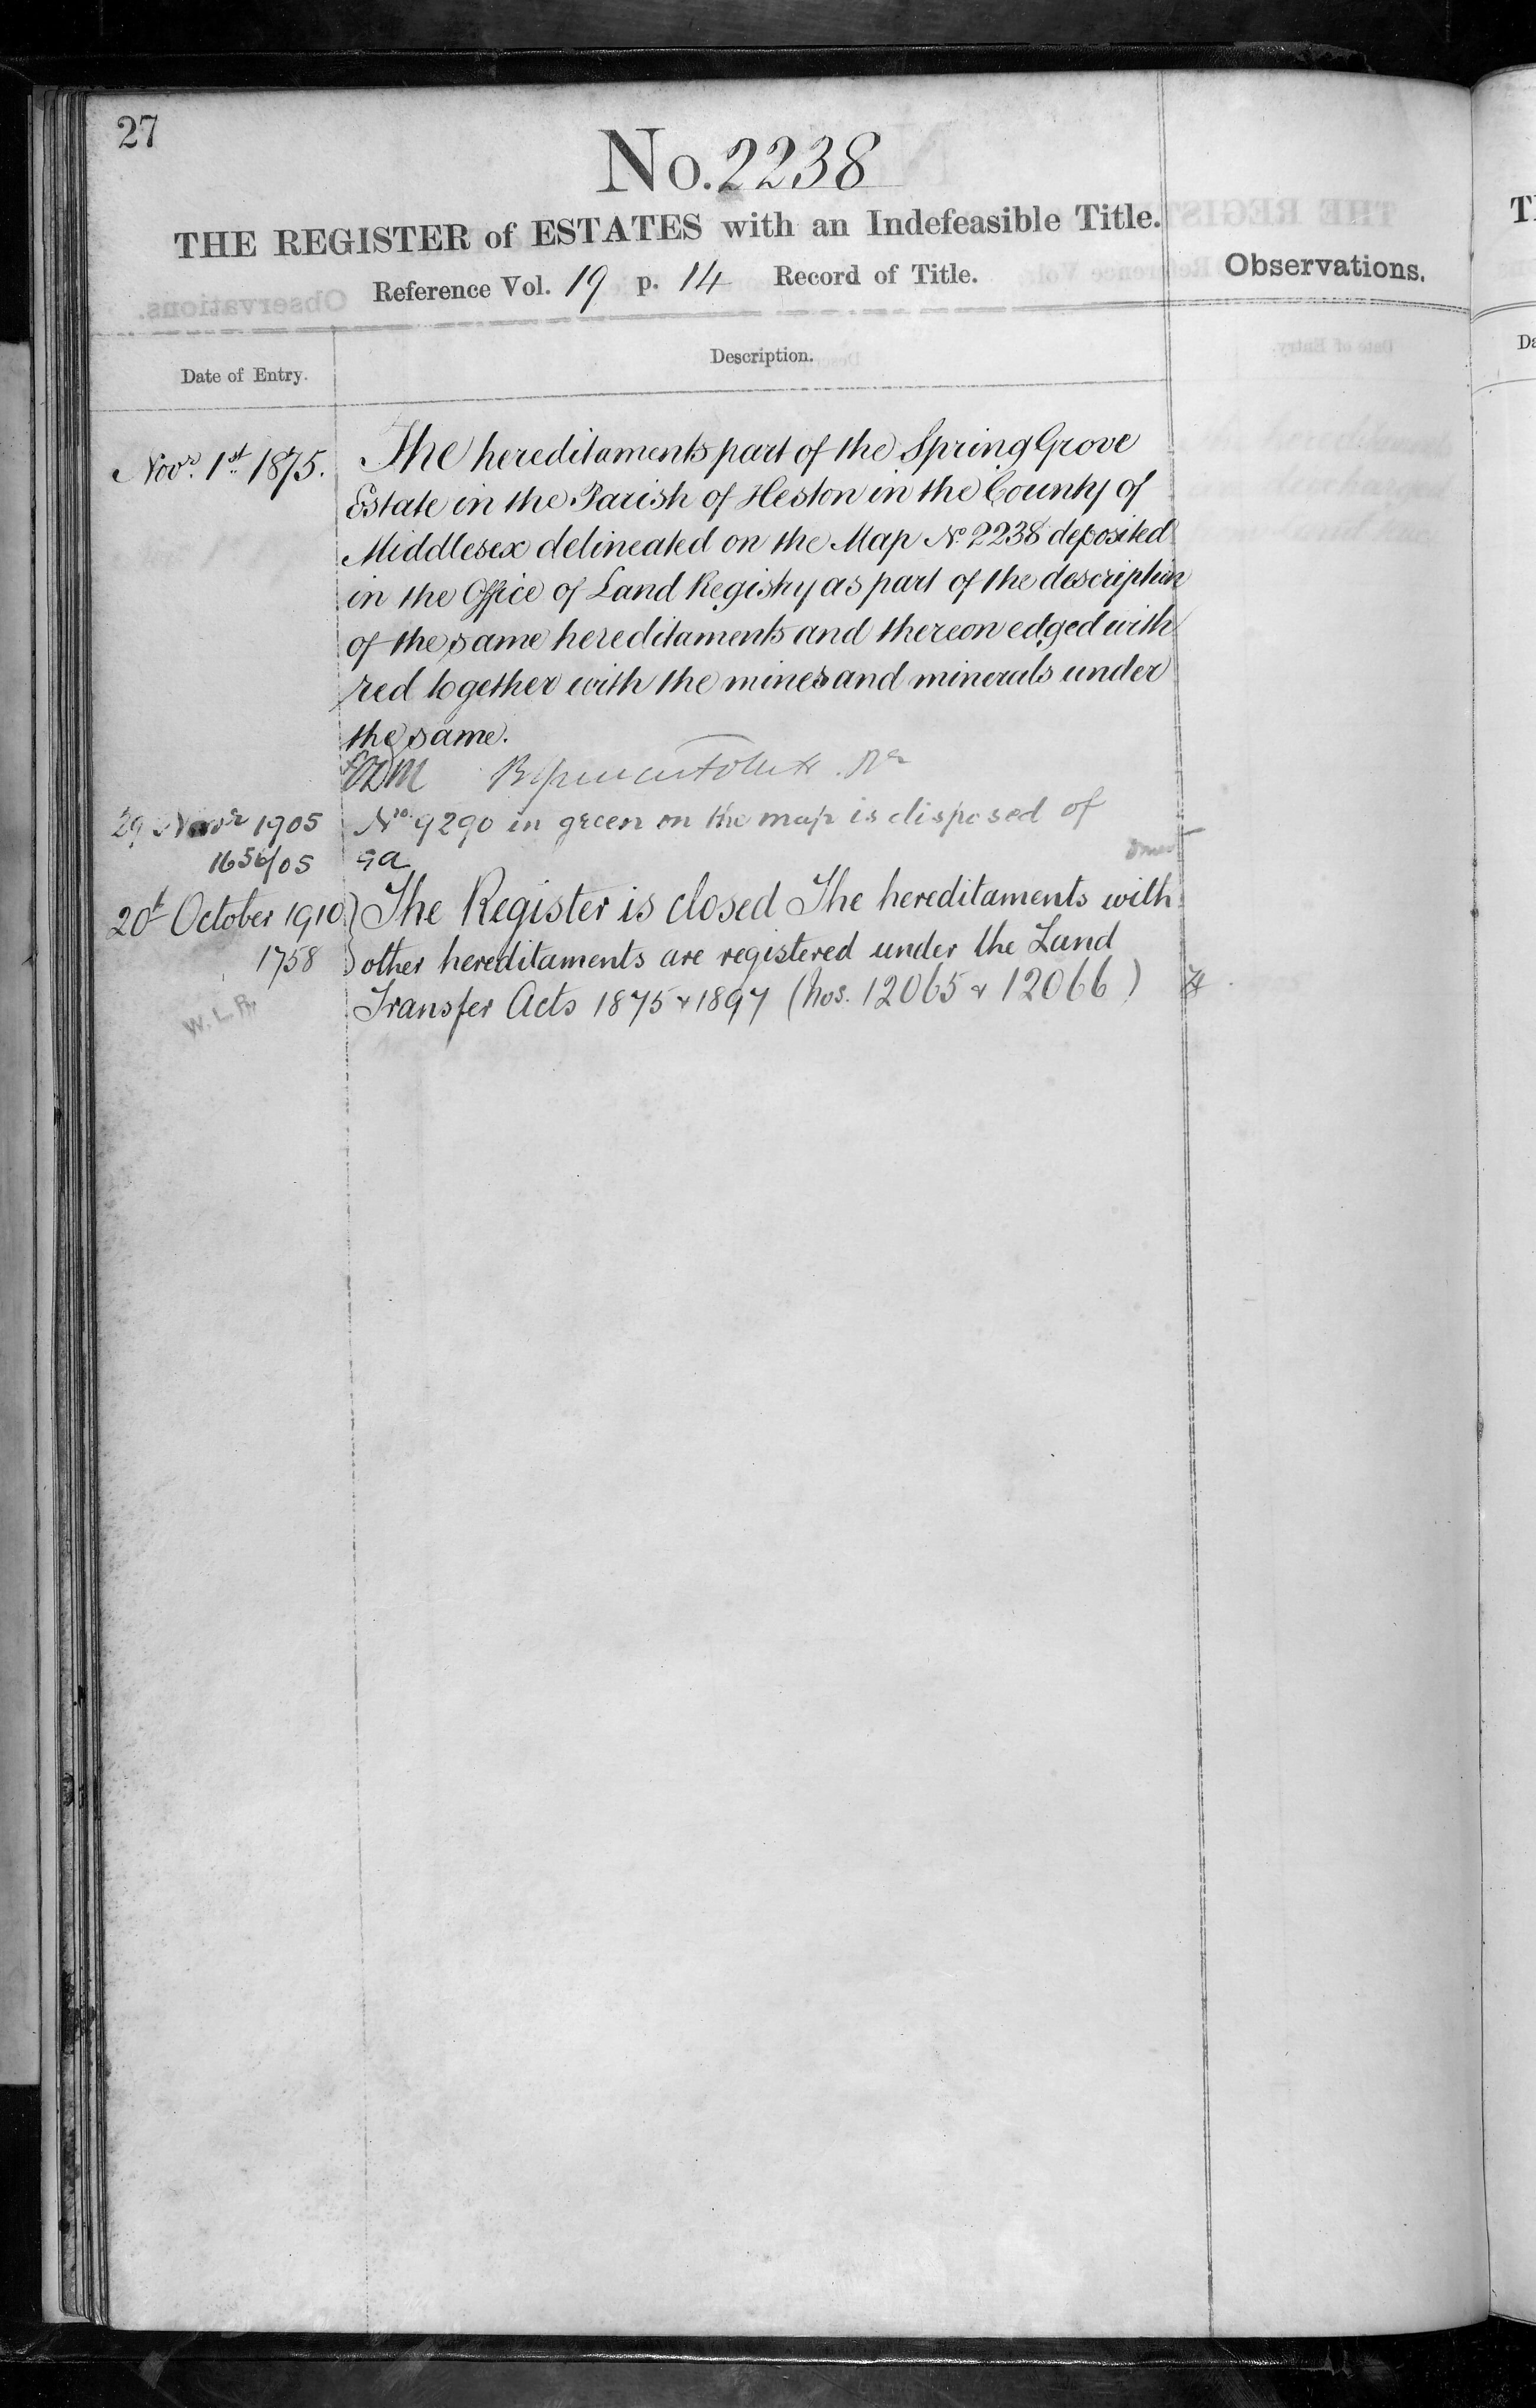 27
No. 2238
THE REGISTER of ESTATES with an Indefeasible Title.
Reference Vol. 19 p. 14 Record of Title.
Observations.
Date of Entry.
Description.
Novr. 1st 1875.
The hereditaments part of the Spring Grove
Estate in the Parish of Heston in the County of
Middlesex delineated on the Map No. 2238 deposited
in the Office of Land Registry as part of the description
of the same hereditaments and thereon edged with
red together with the mines and minerals under
the same.
29 Novr 1905
No. 9290 in green on the map is disposed of
1656/05
20t October 1910
The Register is closed The hereditaments with
1758
other hereditaments are registered under the Land
Transfer Acts 1875 & 1897 (Nos. 12065 & 12066)